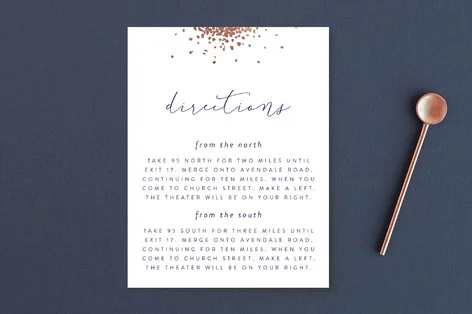 directions
from the north
TAKE 95 NORTH FOR TWO MILES UNTIL
EXIT 17. MERGE ONTO AVENDALE ROAD,
CONTINUING FOR TEN MILES. WHEN YOU
COME TO CHURCH STREET, MAKE A LEFT.
THE THEATER WILL BE ON YOUR RIGHT.
from the south
TAKE 95 SOUTH FOR THREE MILES UNTIL
EXIT 17. MERGE ONTO AVENDALE ROAD,
CONTINUING FOR TEN MILES. WHEN YOU
COME TO CHURCH STREET, MAKE A LEFT.
THE THEATER WILL BE ON YOUR RIGHT.